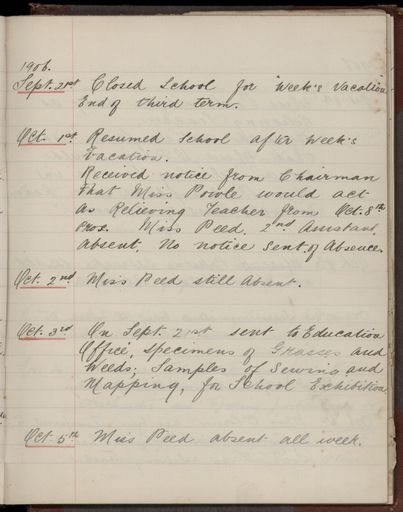 1906.
Sept. 21st Closed School for Week's Vacation
End of third term.
Oct. 1st Resumed School after Week's
Vacation.
Received notice from Chairman
that Miss Poole would act
as Relieving Teacher from Oct. 8th
prox. Miss Peed, 2nd Assistant,
absent. No notice sent of Absence.
Oct. 2nd Miss Peed still absent.
Oct. 3rd On Sept. 21st sent to Education
Office, Specimens of Grasses and
Weeds; Samples of Sewing and
Mapping, for School Exhibition
Oct. 5th Miss Peed absent all week.